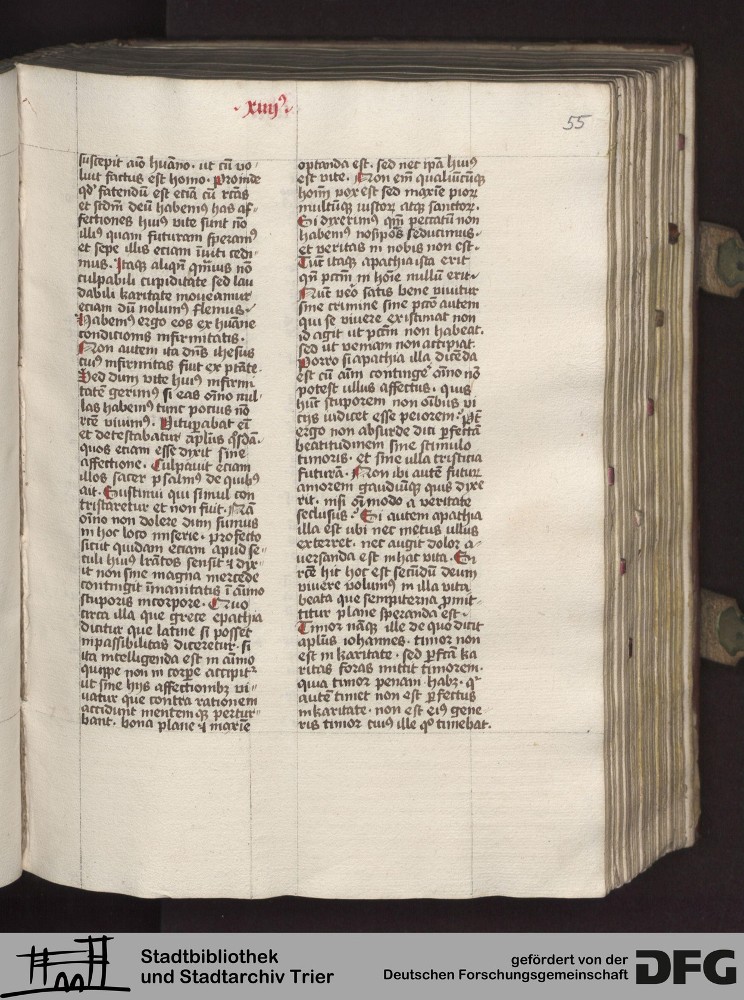 ·xiiij⁹·
55
suscepit aīo hūano · ut cū vo
luit factus est homo · Proinde
qd' fatendū est eciā cū rc̄as
et scd̄m deū habem⁹ has af
fectiones hui⁹ vite sunt nō
illi⁹ quam futuram speram⁹
et sepe illis eciam īuiti cedi
mus · Itaq̨ aliqn̄ qm̄uis nō
culpabili cupiditate sed lau
dabili karitate moveamur
eciam dū nolum⁹ flemus ·
Habem⁹ ergo eos ex hūane
conditionis infirmitatis ·
Non autem ita dn̄s ihesus
cui⁹ infirmitas fuit ex ptāte ·
Sed dum vite hui⁹ infirmi
tatē gerim⁹ si eas oīno nul
las habem⁹ tunc pocius nō
rc̄e vivim⁹ · Vitupabat eī
et detestabatur apl̄us q̄sdā ·
quos eciam esse dixit sine
affectione · Culpauit eciam
illos sacer psalm⁹ de quib⁹
ait · Sustinui qui simul con
tristaretur et non fuit · Nā
oīno non dolere dum sumus
in hoc loco miserie · profecto
sicut quidam eciam apud se
culi hui⁹ lrātos sensit ⁊ dix
it non sine magna mercede
contingit īmanitatis ī aīmo
stuporis incorpore · Quo
circa illa que grece apathia
dicitur que latine si posset
impassibilitas diceretur · si
ita intelligenda est in aīmo
quippe non in corpe accipit᷑
ut sine hijs affectionibz vi
vatur que contra rationem
accidunt mentemq̨ pertur
bant · bona plane ⁊ maxīe
optanda est · sed nec ip̄a hui⁹
est vite · Non em̄ qualiūcūq̨
hoīm vox est sed maxīe pior
multūq̨ iustor atq̨ sanctor ·
Si dixerim⁹ qm̄ peccatū non
habem⁹ nosip̄os seducimus ·
et veritas in nobis non est ·
Tūc itaq̨ apathia ista erit
qn̄ pctm̄ in hoīe nullū erit ·
Nūc v̄o satis bene vivitur
sine crimine sine pctō autem
qui se vivere existimat non
id agit ut pctm̄ non habeat ·
sed ut veniam non accipiat ·
Porro si apathia illa dicēda
est cū aīm continge᷑ oīno nō
potest ullus affectus · quis
hūc stuporem non oībus vi
ciis iudicet esse peiorem · Pt̄
ergo non absurde dici pfectā
beatitudinem sine stimulo
timoris · et sine ulla tristicia
futurā · Non ibi autē futur
amorem gaudiūq̨ quis dixe
rit · nisi oīmodo a veritate
seclusus · Si autem apathia
illa est ubi nec metus ullus
exterret · nec angit dolor a
versanda est in hac vita · Si
rc̄e hic hoc est secūdū deum
vivere volum⁹ in illa vita
beata que sempiterna pmit
titur plane speranda est ·
Timor nāq̨ ille de quo dicit
apl̄us iohannes · timor non
est in karitate · sed pfcā ka
ritas foras mittit timorem ·
quia timor penam habz · q'
autē timet non est pfectus
in karitate · non est ei⁹ gene
ris timor cui⁹ ille q° timebat ·
Stadtbibliothek
und Stadtarchiv Trier
gefördert von der
Deutschen Forschungsgemeinschaft
DFG